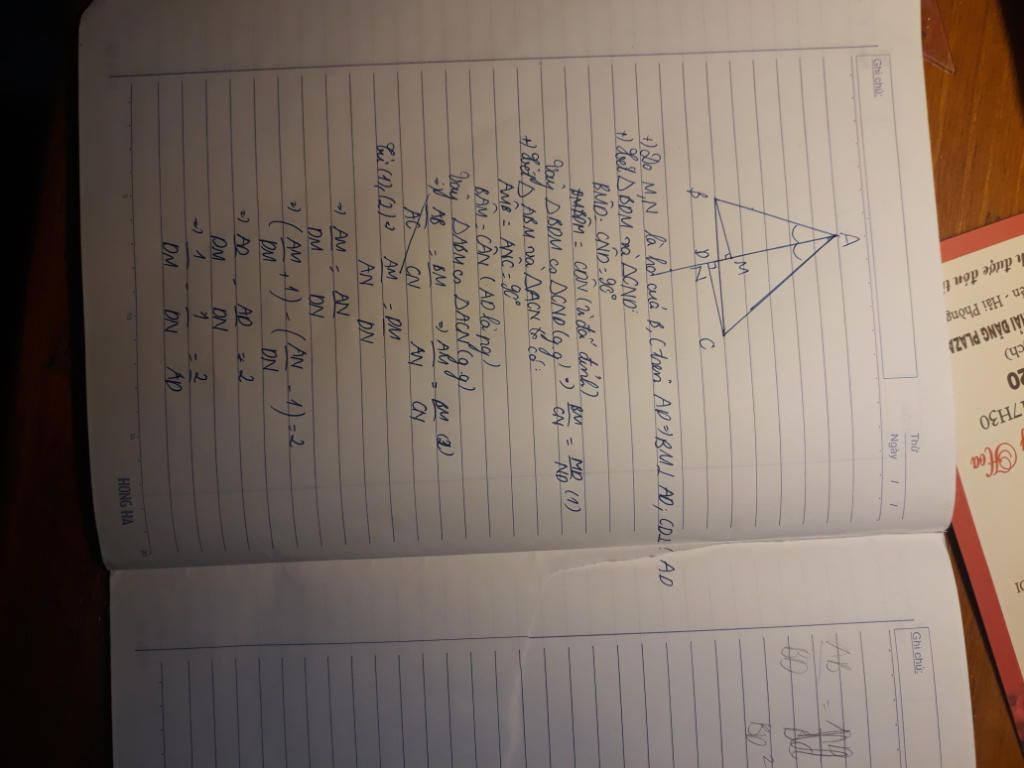 Ghi chú:
Thứ
Ngày / /
A
B
M
D
N
C
+) Do M, N là h/c của B, C trên AD => BM ⊥ AD; CD ⊥ AD
+) Xét △BDM và △CND:
BMD = CND = 90°
BDM = CDN (2 đối đỉnh)
Vậy △BDM ∽ △CND (g.g) => BM/CN = MD/ND (1)
+) Xét △ABM và △ACN ta có:
AMB = ANC = 90°
BAM = CAN (AD là pg)
Vậy △ABM ∽ △ACN (g.g)
=> AB/AC = BM/CN => AM/AN = BM/CN (2)
Từ (1), (2) => AM/AN = DM/DN
=> AM/DM = AN/DN
=> (AM/DM + 1) - (AN/DN - 1) = 2
=> AD/DM - AD/DN = 2
=> 1/DM - 1/DN = 2/AD
HONG HA
Ghi chú:
AB
BD
=
BD =
17H30
20
HẢI ĐĂNG PLAZA
Hải Phòng
h được đón ti
Hoa